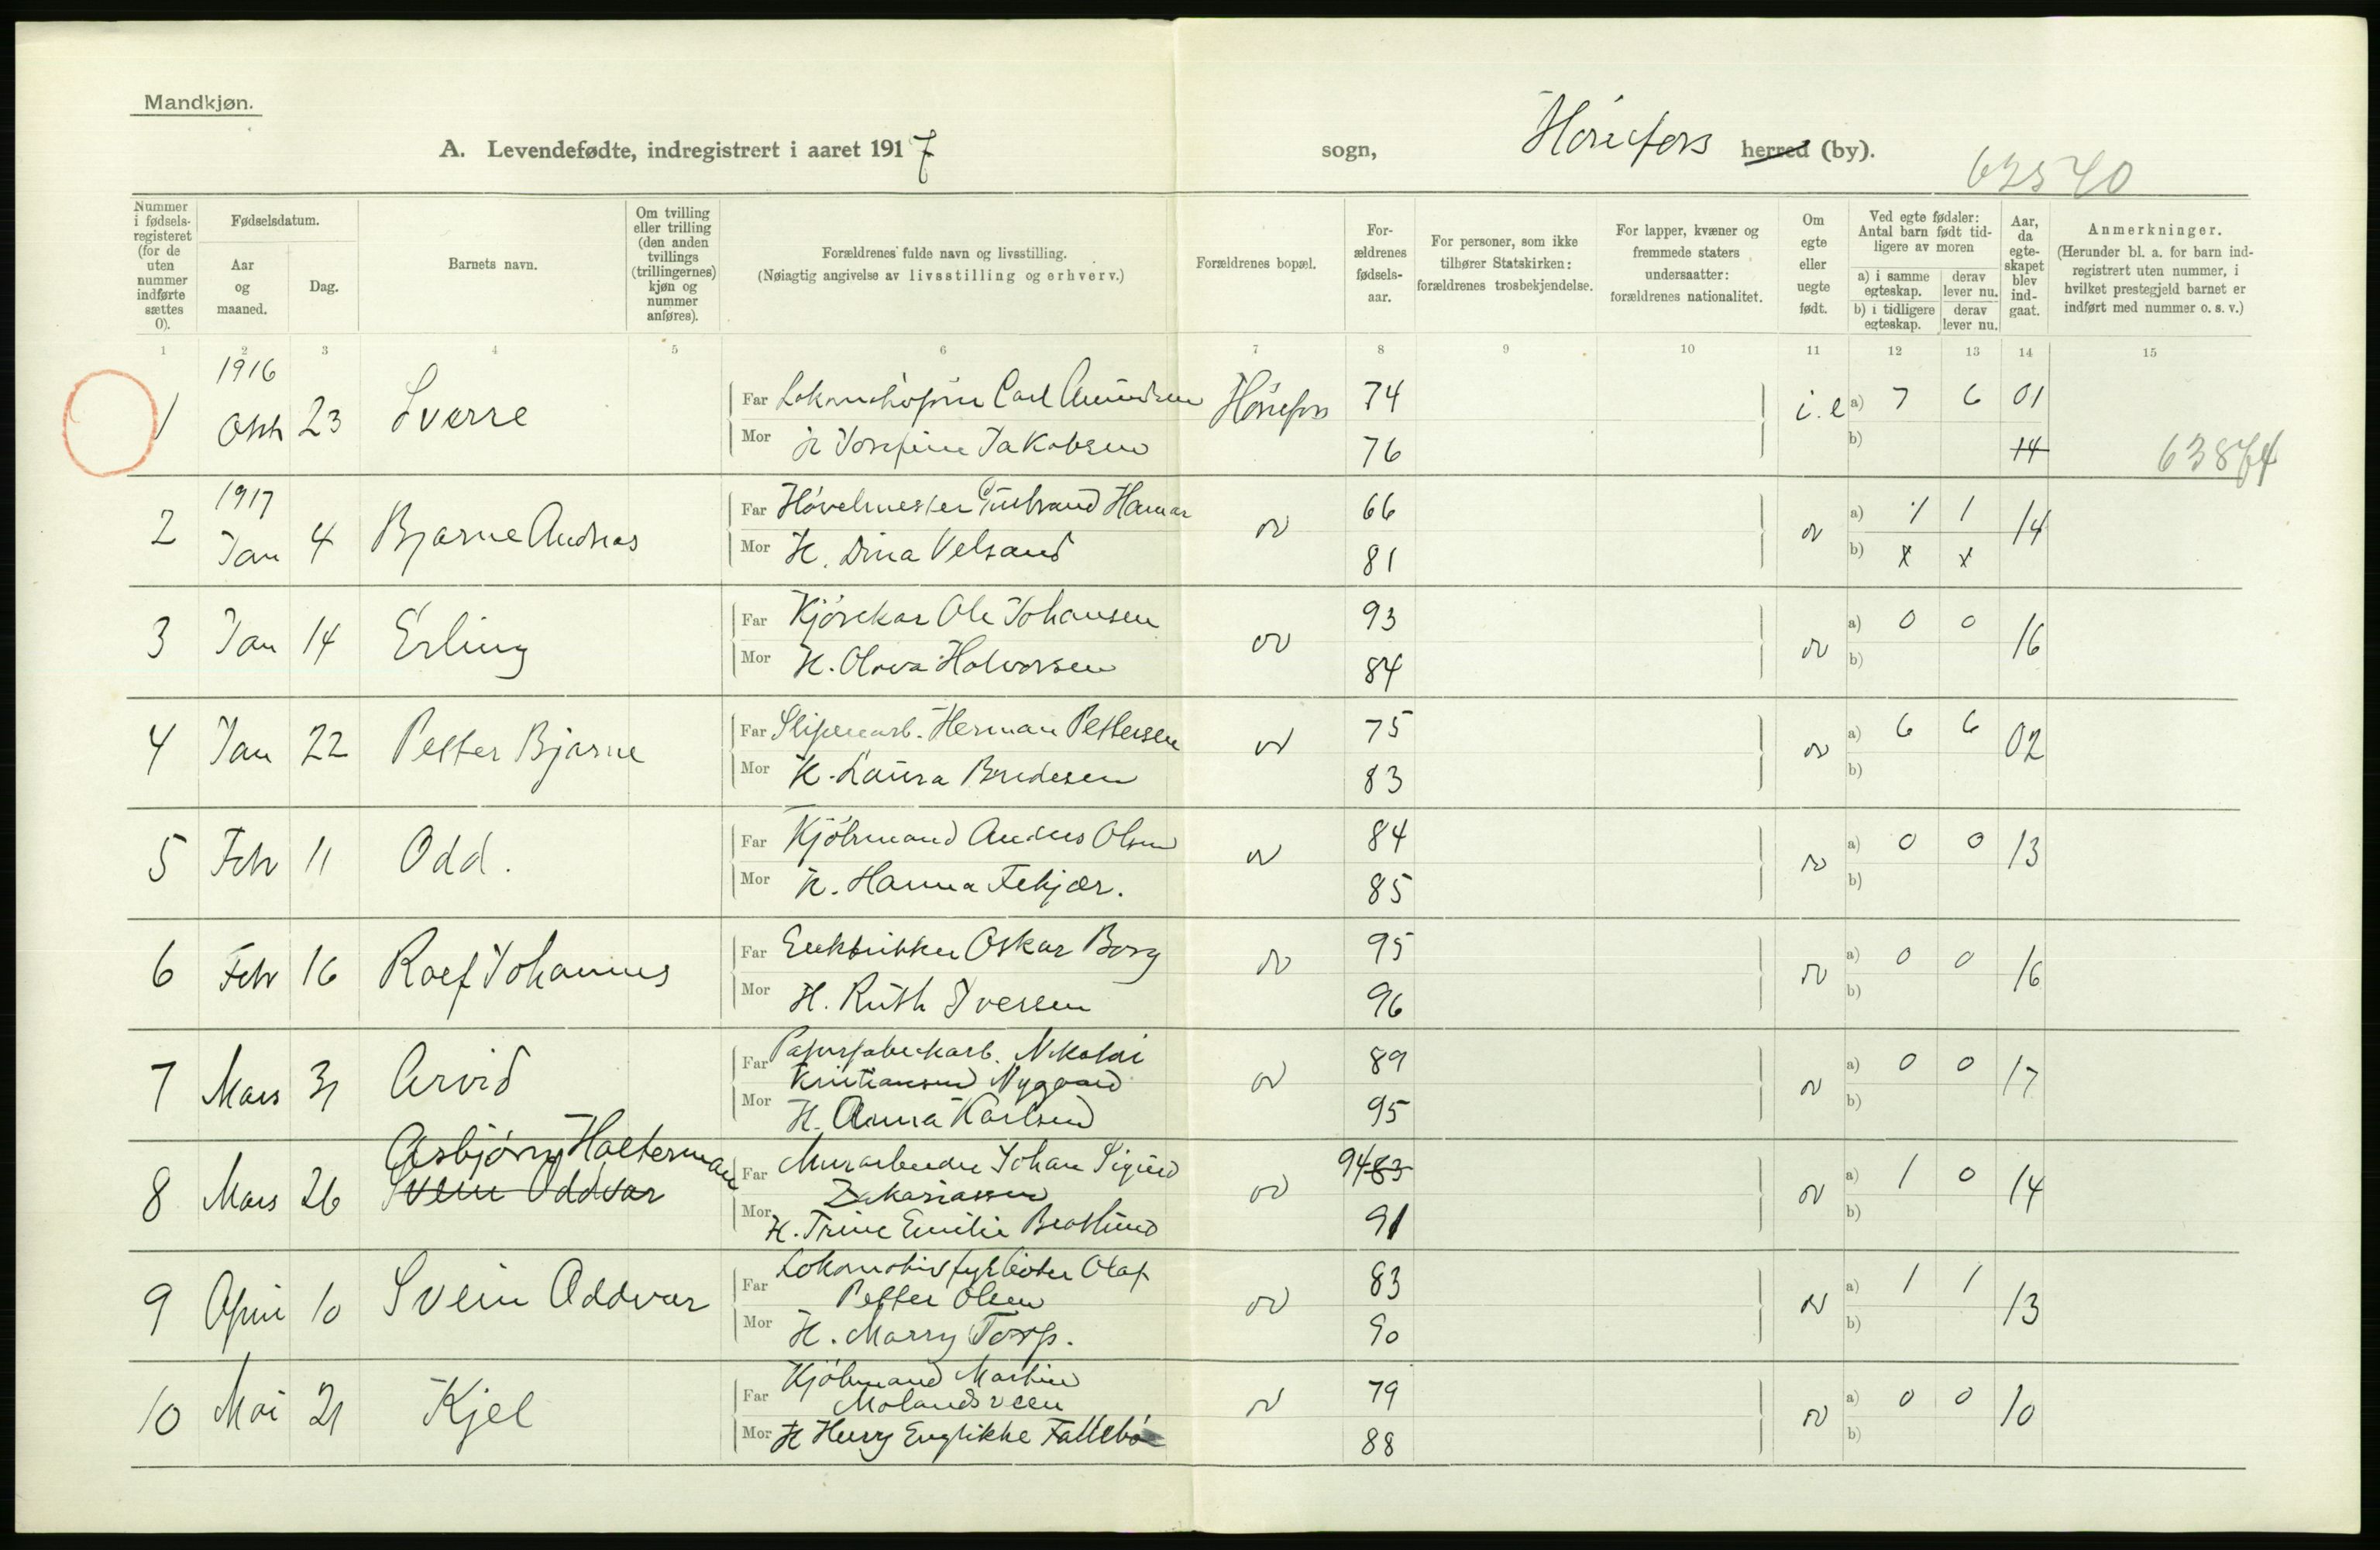 Mandkjøn.
A. Levendefødte, indregistrert i aaret 1917
sogn, Hönefoss herred (by).
62540
Nummer i fødsels-registeret (for de uten nummer indførte sættes 0).
Fødselsdatum.
Aar og maaned.
Dag.
Barnets navn.
Om tvilling eller trilling (den anden tvillings (trillingernes) kjøn og nummer anføres).
Forældrenes fulde navn og livsstilling.
(Nøiagtig angivelse av livsstilling og erhverv.)
Forældrenes bopæl.
For-ældrenes fødsels-aar.
For personer, som ikke tilhører Statskirken: forældrenes trosbekjendelse.
For lapper, kvæner og fremmede staters undersaatter: forældrenes nationalitet.
Om egte eller uegte født.
Ved egte fødsler: Antal barn født tid-ligere av moren
a) i samme egteskap. derav lever nu.
b) i tidligere egteskap. derav lever nu.
Aar, da egte-skapet blev ind-gaat.
Anmerkninger.
(Herunder bl. a. for barn ind-registrert uten nummer, i hvilket prestegjeld barnet er indført med nummer o. s. v.)
1 2 3 4 5 6 7 8 9 10 11 12 13 14 15
1916
1 Okt 23 Sverre Far Carl Amundsen Hönefoss 74 i.e a) 7 6 01
Mor Josefine Jakobsen 76 b) 14
63874
1917
2 Jan 4 Bjarne Andreas Far Hövelmester Gulbrand Hamar 66 a) 1 1 14
Mor H. Dina Velsand 81 b) x x
3 Jan 14 Erling Far Kjörekar Ole Johansen 93 a) 0 0 16
Mor H. Olava Halvorsen 84 b)
4 Jan 22 Petter Bjarne Far Sliperiarb. Herman Pettersen 75 a) 6 6 02
Mor H. Laura Bredesen 83 b)
5 Feb 11 Odd. Far Kjöbmand Anders Olsen 84 a) 0 0 13
Mor H. Hanna Fekjær. 85 b)
6 Feb 16 Roef Johannes Far Oskar Borg 95 a) 0 0 16
Mor H. Ruth Iversen 96 b)
7 Mars 31 Arvid Far Papirfabrikarb. Nikolai
Kristiansund Nygaard 89 a) 0 0 17
Mor H. Anna Karlsen 95 b)
Asbjørn Halterman
8 Mars 26 Svein Oddvar Far Murarbeider Johan Sigurd 94 83 a) 1 0 14
Zakariassen
Mor H. Trine Emilie 91 b)
9 April 10 Svein Oddvar Far Lokomotivfyrböter Olaf
Petter Olsen 83 a) 1 1 13
Mor H. Marry Torp. 90 b)
10 Mai 21 Kjel Far Kjöbmand Martin
Molandsveen 79 a) 0 0 10
Mor H Fallebö 88 b)